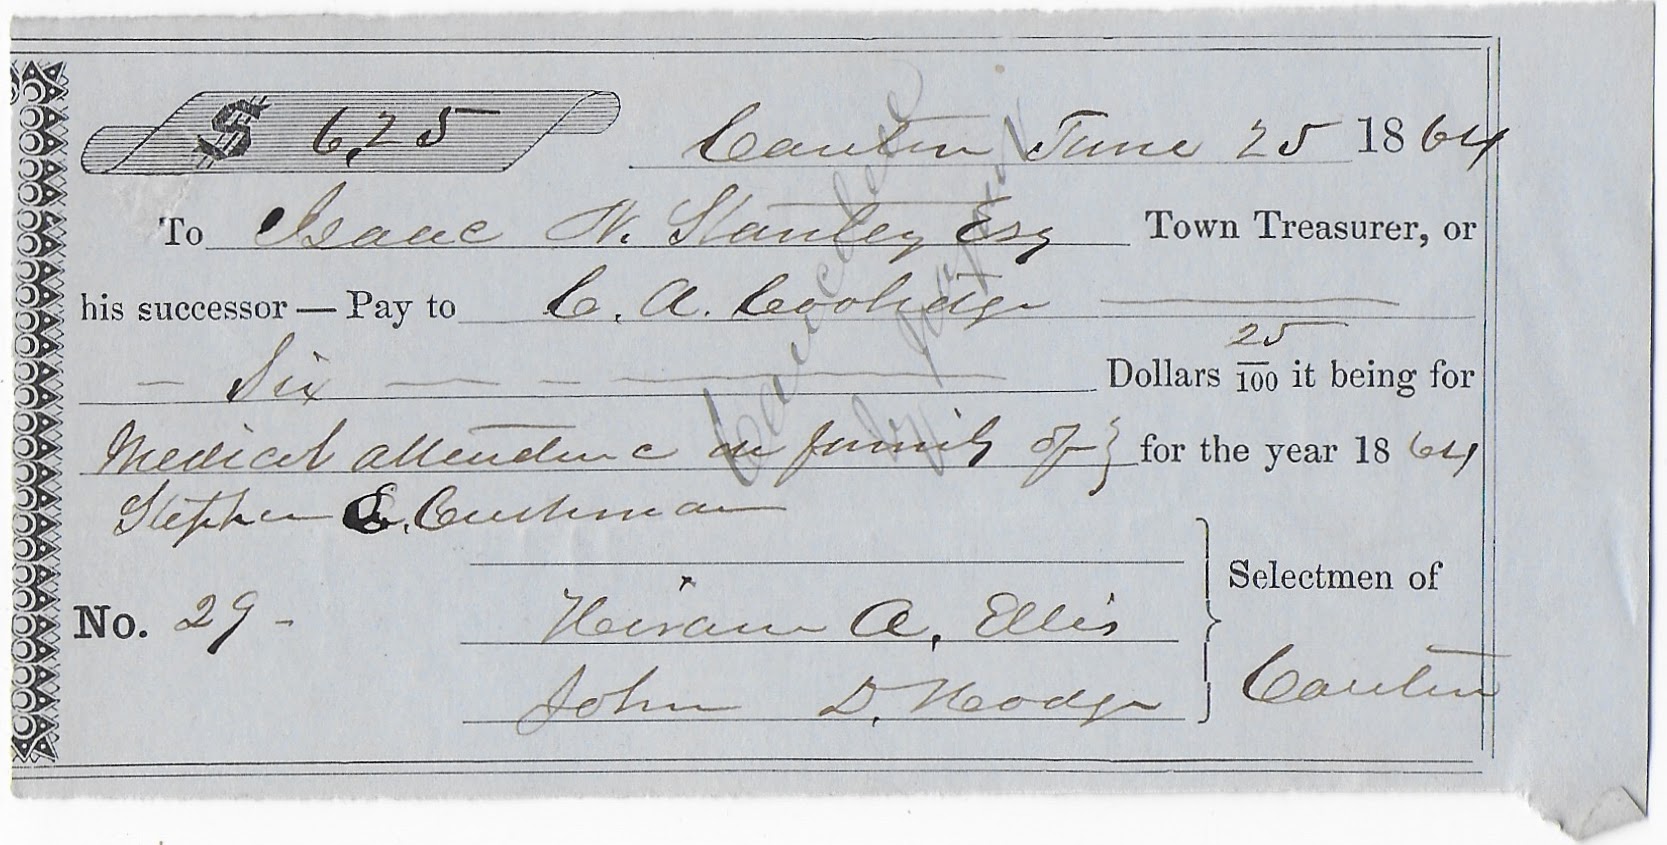 $ 6,25 Canton June 25 1864
To Isaac N. Stanley Esq Town Treasurer, or
his successor — Pay to C. A. Coolidge
Six Dollars 25/100 it being for
Medical attendenc in family of } for the year 1864
Stephen E. Cushman
Selectmen of
No. 29 - Hiram A. Ellis
John D. Hodge Canton
Cancelled
by